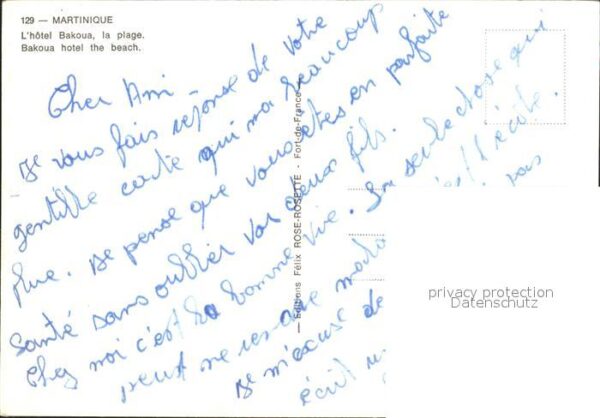 129 — MARTINIQUE
L'hôtel Bakoua, la plage.
Bakoua hotel the beach.
Cher Ami -
Je vous fais réponse de votre
gentille carte qui m'a beaucoup
plue. Je pense que vous êtes en parfaite
Santé sans oublier vos fils.
Chez moi c'est la bonne vie. La seule chose qui
peut c'est l'école.
Je m'excuse de vous
écrit
— Editions Félix ROSE-ROSETTE - Fort-de-France
privacy protection
Datenschutz